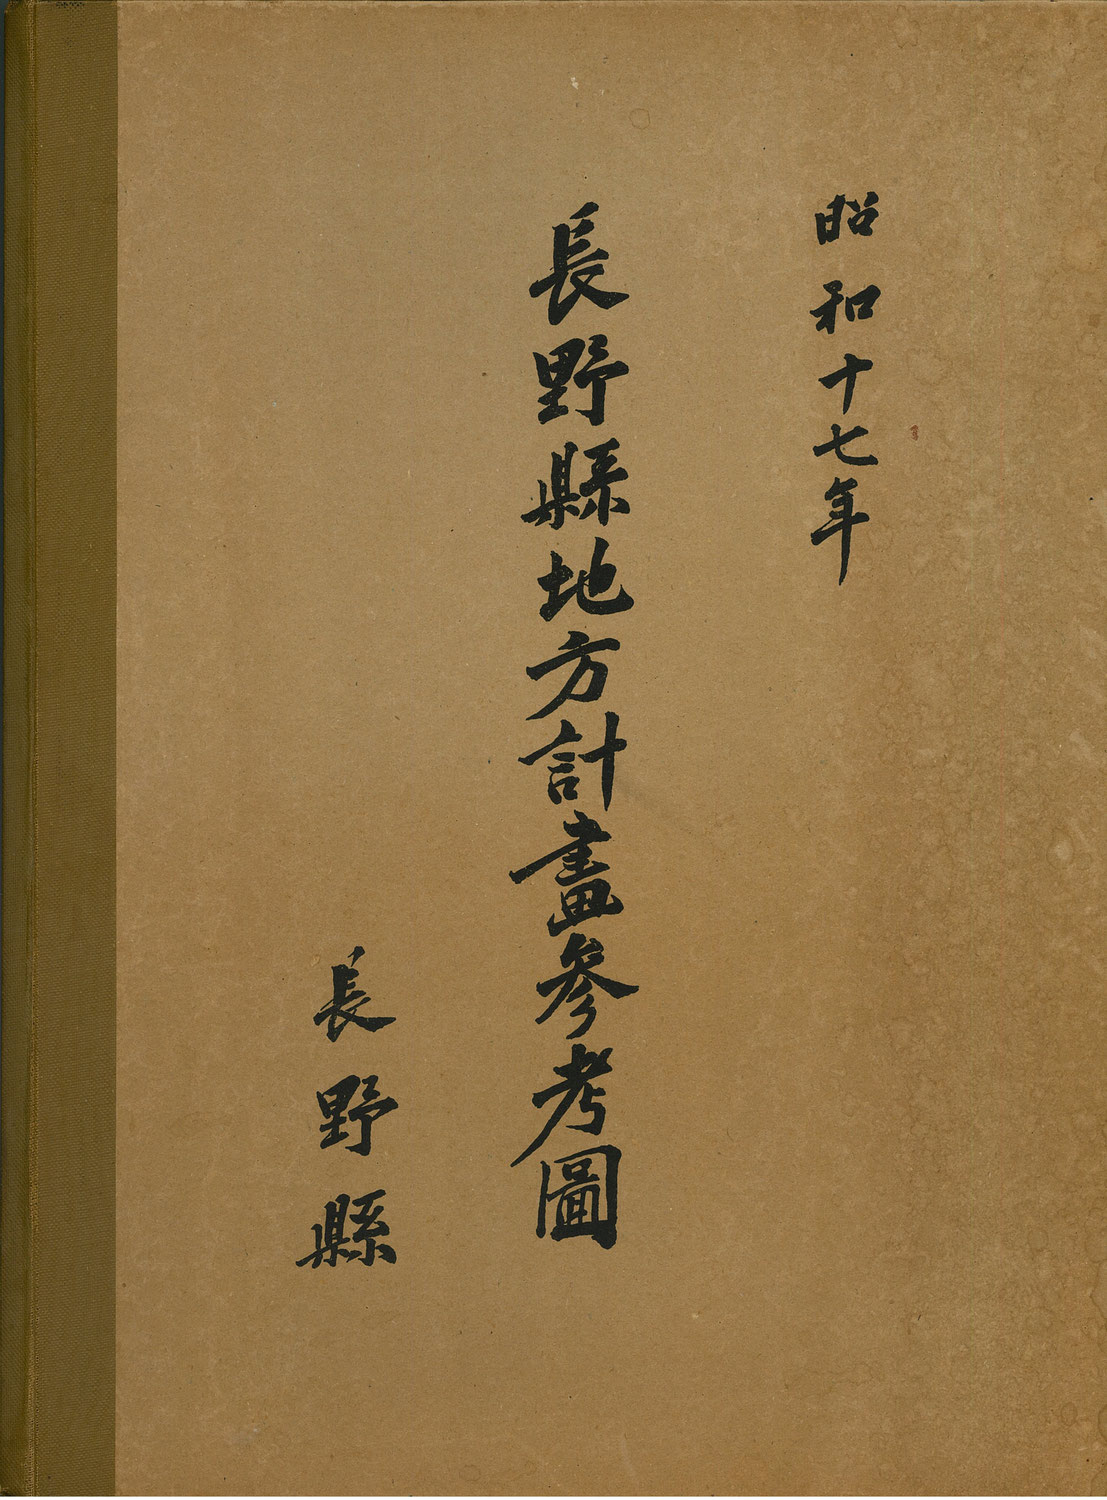 昭和十七年
長野縣地方計畫參考圖
長野縣